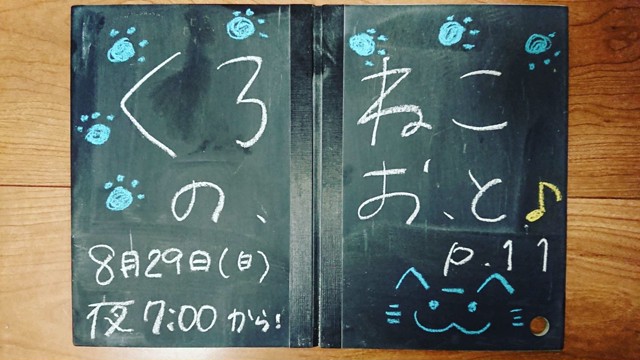 くろねこ
の、お、と♪
p.11
8月29日(日)
夜7:00から!